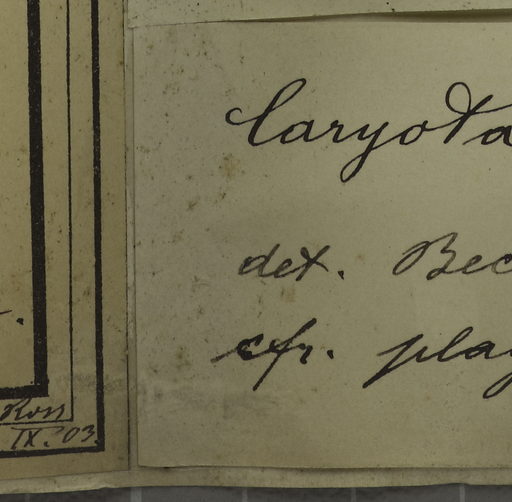 Caryota
det. Bec
cfr. play
Ross
IX. 03.